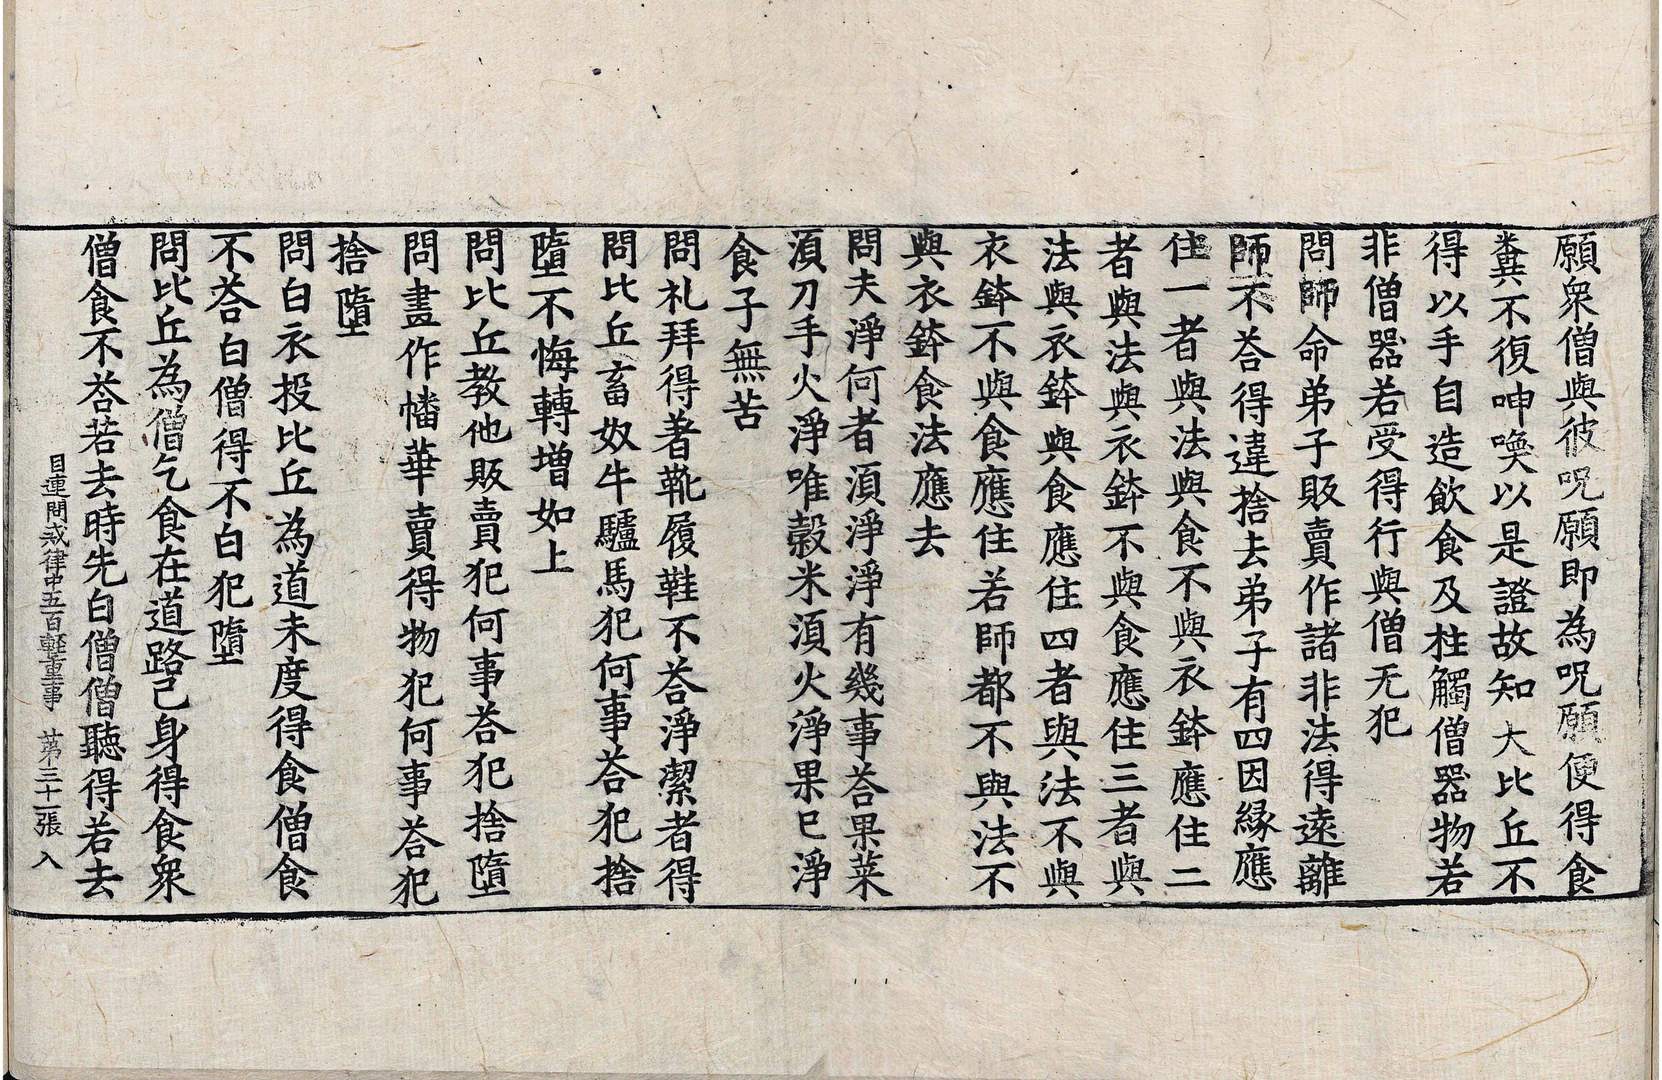 願衆僧與彼呪願即為呪願便得食
糞不復呻喚以是證故知大比丘不
得以手自造飲食及柱觸僧器物若
非僧器若受得行與僧无犯
問師命弟子販賣作諸非法得遠離
師不荅得違捨去弟子有四因緣應
住一者與法與食不與衣鉢應住二
者與法與衣鉢不與食應住三者與
法與衣鉢與食應住四者與法不與
衣鉢不與食應住若師都不與法不
與衣鉢食法應去
問夫淨何者湏淨淨有幾事荅果菜
湏刀手火淨唯穀米湏火淨果已淨
食子無苦
問礼拜得著靴履鞋不荅淨潔者得
問比丘畜奴牛驢馬犯何事荅犯捨
墮不悔轉增如上
問比丘教他販賣犯何事荅犯捨墮
問畫作幡華賣得物犯何事荅犯
捨墮
問白衣投比丘為道未度得食僧食
不荅白僧得不白犯墮
問比丘為僧乞食在道路己身得食衆
僧食不荅若去時先白僧僧聽得若去
目連問戒律中五百輕重事 苐三十二張 入